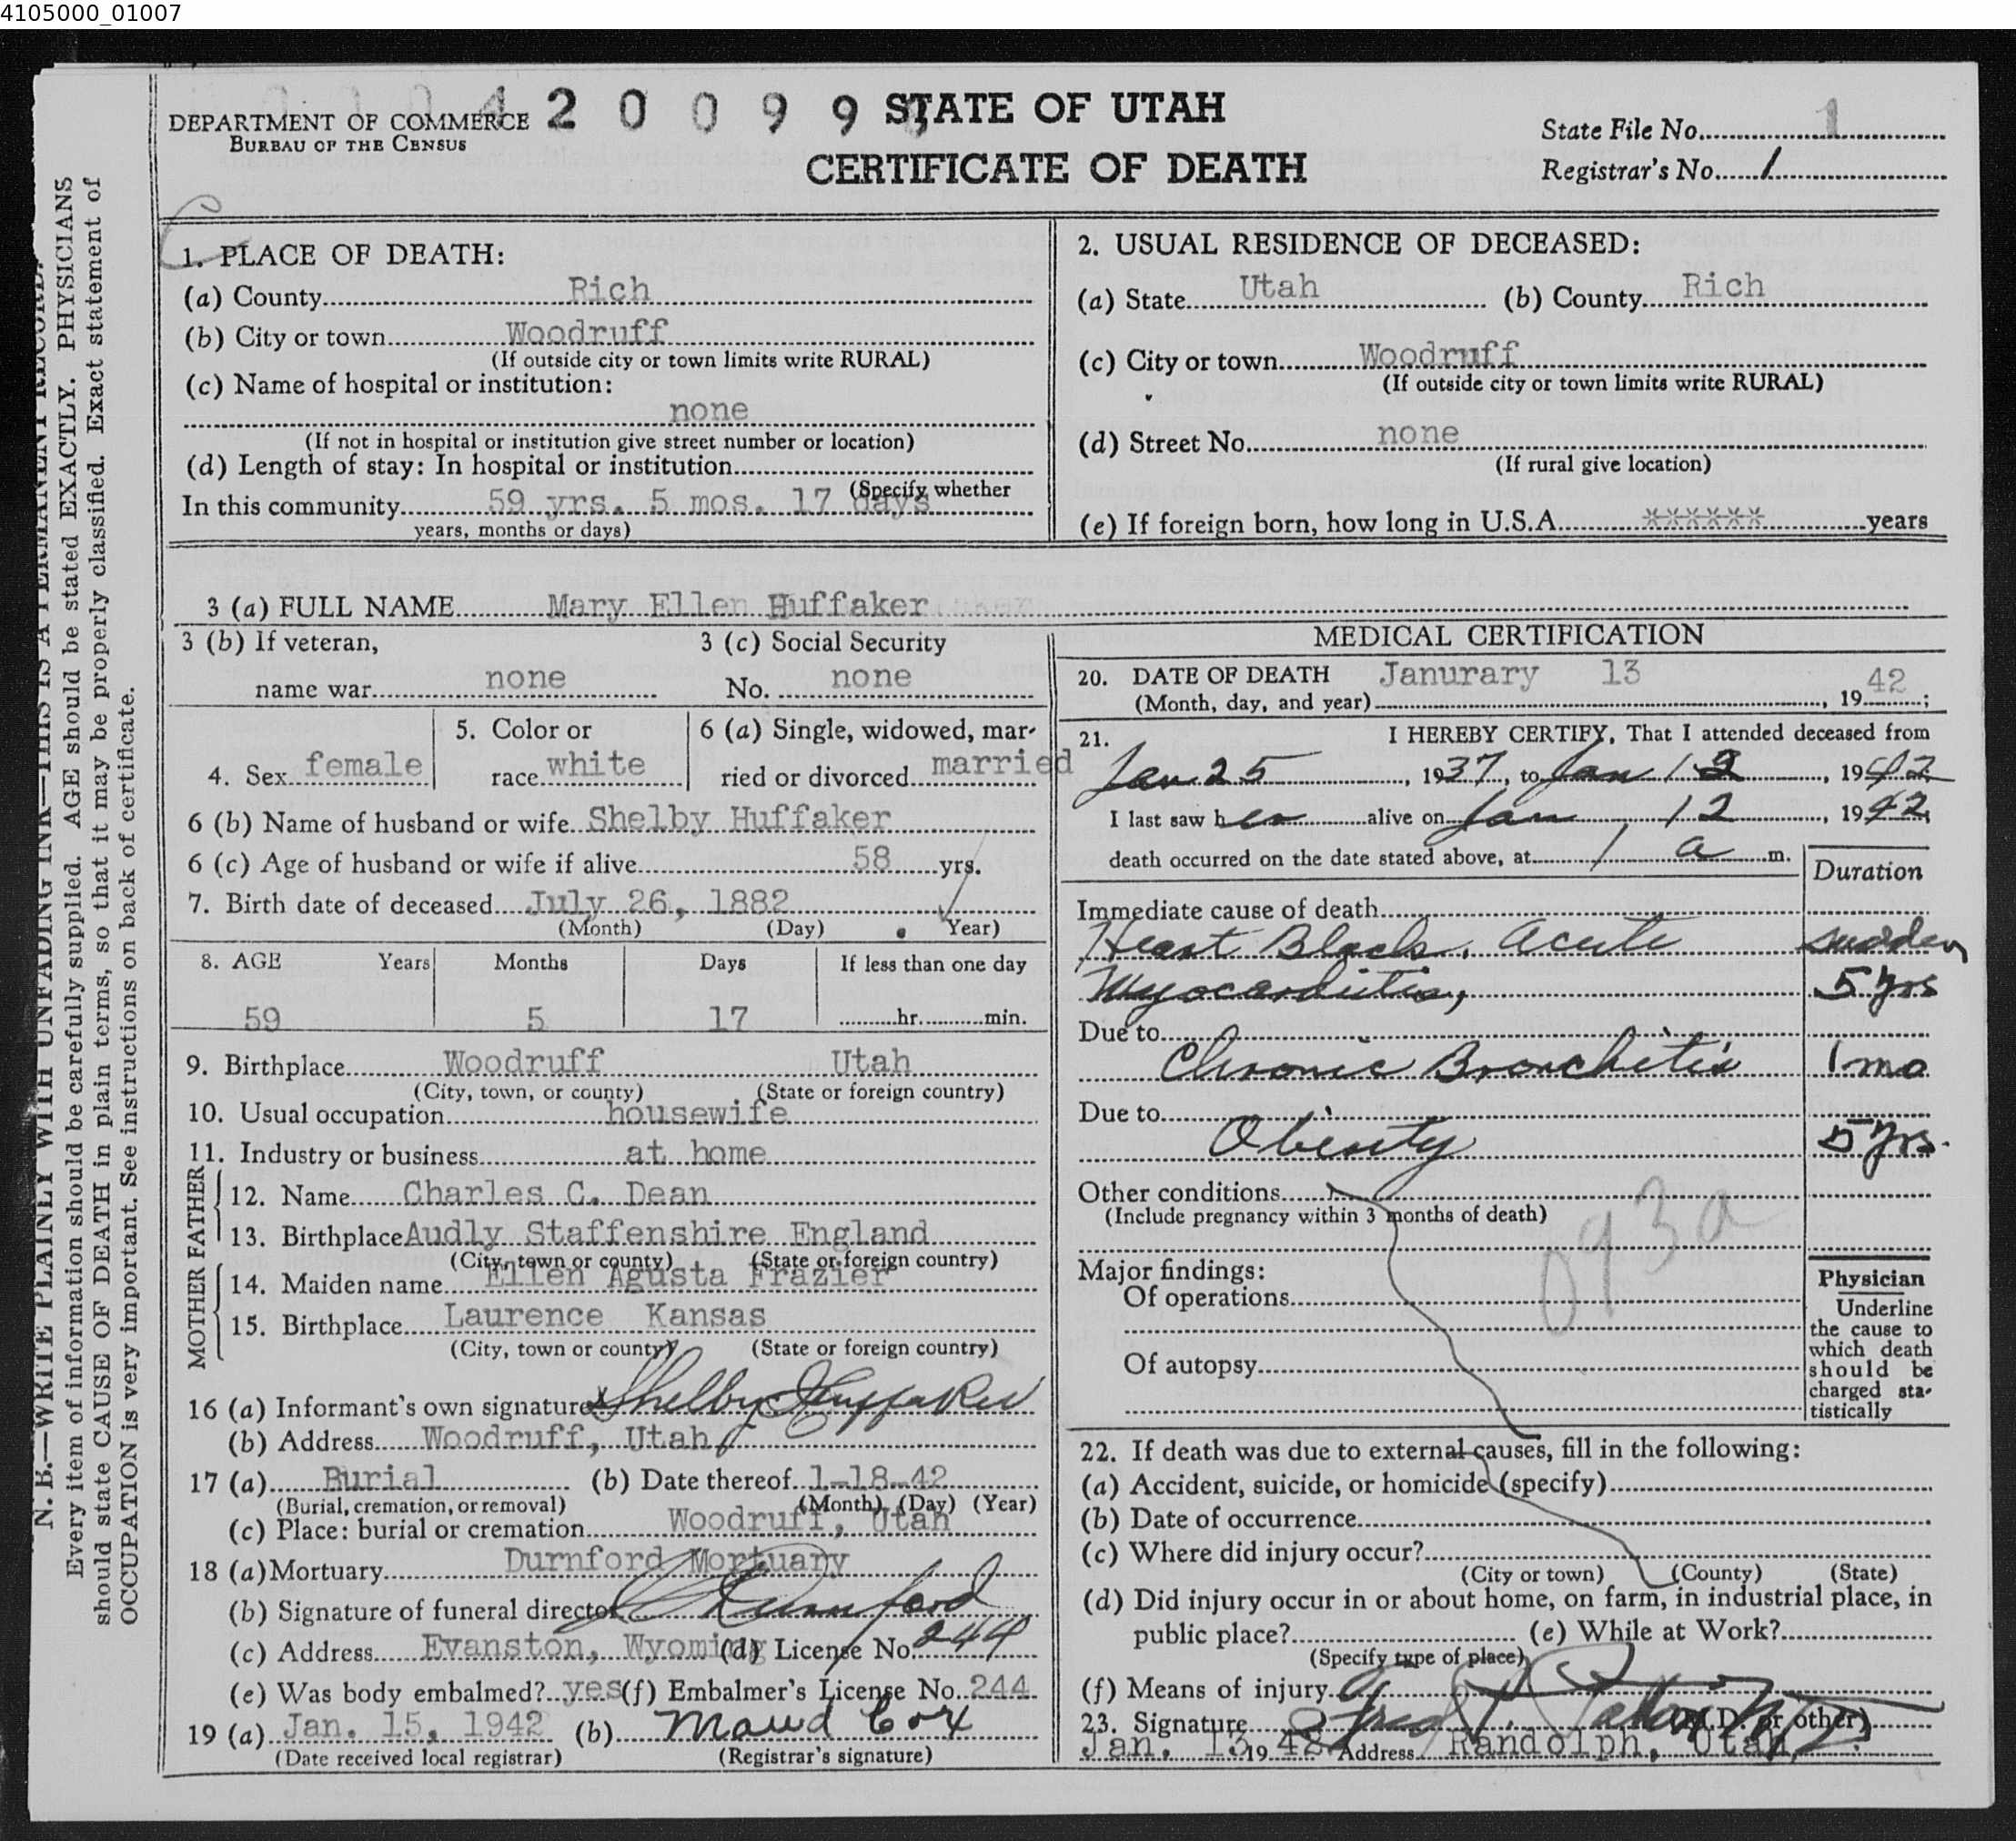 4105000_01007
N. B.—WRITE PLAINLY WITH UNFADING INK—THIS IS A PERMANENT RECORD.
Every item of information should be carefully supplied. AGE should be stated EXACTLY. PHYSICIANS
should state CAUSE OF DEATH in plain terms, so that it may be properly classified. Exact statement of
OCCUPATION is very important. See instructions on back of certificate.
DEPARTMENT OF COMMERCE
BUREAU OF THE CENSUS
4 2 0 0 9 9
STATE OF UTAH
CERTIFICATE OF DEATH
State File No. 1
Registrar's No. 1
1. PLACE OF DEATH:
(a) County Rich
(b) City or town Woodruff
(If outside city or town limits write RURAL)
(c) Name of hospital or institution:
none
(If not in hospital or institution give street number or location)
(d) Length of stay: In hospital or institution
(Specify whether
In this community 59 yrs. 5 mos. 17 days
years, months or days)
2. USUAL RESIDENCE OF DECEASED:
(a) State Utah (b) County Rich
(c) City or town Woodruff
(If outside city or town limits write RURAL)
(d) Street No. none
(If rural give location)
(e) If foreign born, how long in U.S.A. ****** years
3 (a) FULL NAME Mary Ellen Huffaker
3 (b) If veteran,
name war none
3 (c) Social Security
No. none
4. Sex female
5. Color or
race white
6 (a) Single, widowed, mar-
ried or divorced married
6 (b) Name of husband or wife Shelby Huffaker
6 (c) Age of husband or wife if alive 58 yrs.
7. Birth date of deceased July 26, 1882
(Month) (Day) Year)
8. AGE Years Months Days If less than one day
59 5 17 hr. min.
9. Birthplace Woodruff Utah
(City, town, or county) (State or foreign country)
10. Usual occupation housewife
11. Industry or business at home
FATHER
12. Name Charles C. Dean
13. Birthplace Audly Staffenshire England
(City, town or county) (State or foreign country)
MOTHER
14. Maiden name Ellen Agusta Frazier
15. Birthplace Laurence Kansas
(City, town or county) (State or foreign country)
16 (a) Informant's own signature x Shelby Huffaker
(b) Address Woodruff, Utah
17 (a) Burial (b) Date thereof 1-18-42
(Burial, cremation, or removal) (Month) (Day) (Year)
(c) Place: burial or cremation Woodruff, Utah
18 (a) Mortuary Durnford Mortuary
(b) Signature of funeral director Durnford
(c) Address Evanston, Wyoming (d) License No. 244
(e) Was body embalmed? yes (f) Embalmer's License No. 244
19 (a) Jan. 15, 1942 (b) Maud Cox
(Date received local registrar) (Registrar's signature)
MEDICAL CERTIFICATION
20. DATE OF DEATH Janurary 13
(Month, day, and year) , 19 42;
21. I HEREBY CERTIFY, That I attended deceased from
Jan 25, 1937, to Jan 13, 1942
I last saw her alive on Jan 12, 1942,
death occurred on the date stated above, at 1 a m.
Duration
Immediate cause of death
Heart Block, Acute sudden
Myocarditis, 5 yrs
Due to
Chronic Bronchitis 1 mo
Due to
Obesity 5 yrs.
Other conditions
(Include pregnancy within 3 months of death)
093a
Major findings:
Of operations
Of autopsy
Physician
Underline
the cause to
which death
should be
charged sta-
tistically
22. If death was due to external causes, fill in the following:
(a) Accident, suicide, or homicide (specify)
(b) Date of occurrence
(c) Where did injury occur?
(City or town) (County) (State)
(d) Did injury occur in or about home, on farm, in industrial place, in
public place? (e) While at Work?
(Specify type of place)
(f) Means of injury
23. Signature (M.D. or other)
Jan. 13 19 42 Address Randolph, Utah,